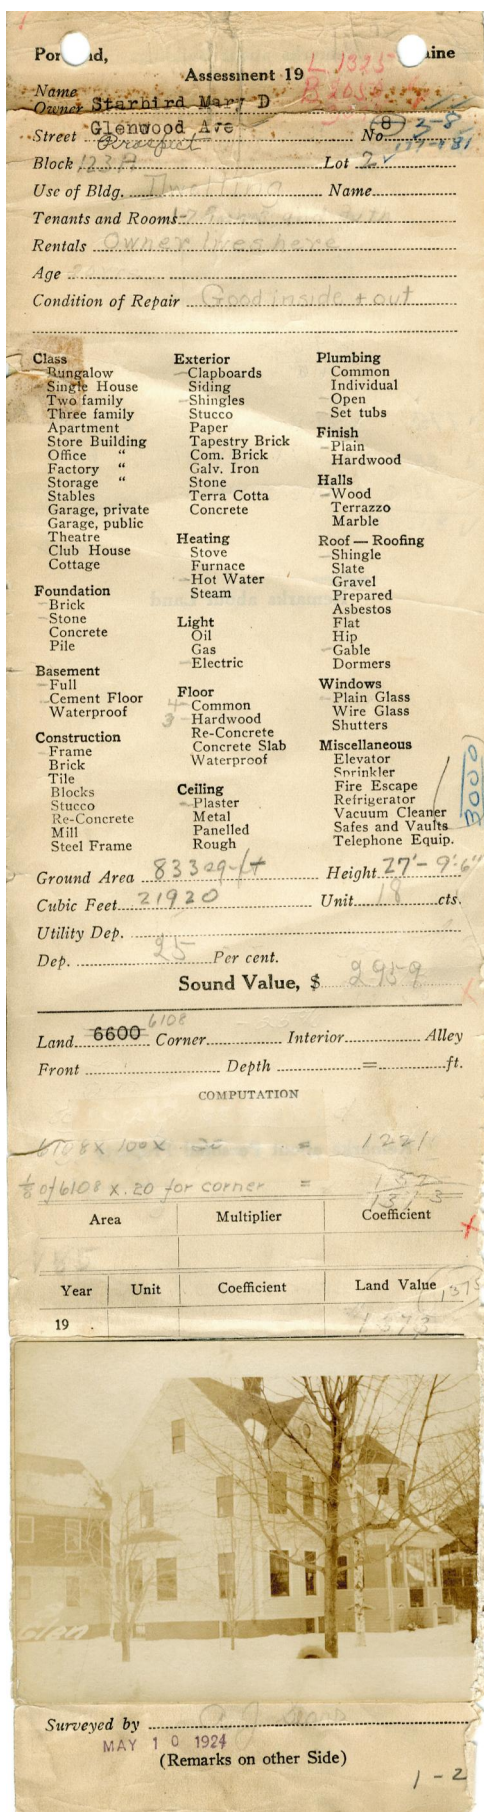 Portland, Maine
Assessment 19
L 1325
B 2055
Name
Owner Starbird Mary D
Street Glenwood Ave No. (8) 3-8
Prospect 177-181
Block 123A Lot 2
Use of Bldg. Dwelling Name
Tenants and Rooms
Rentals Owner lives here
Age
Condition of Repair Good inside + out
Class
Bungalow
Single House
Two family
Three family
Apartment
Store Building
Office "
Factory "
Storage "
Stables
Garage, private
Garage, public
Theatre
Club House
Cottage
Foundation
Brick
Stone
Concrete
Pile
Basement
Full
Cement Floor
Waterproof
Construction
Frame
Brick
Tile
Blocks
Stucco
Re-Concrete
Mill
Steel Frame
Exterior
Clapboards
Siding
Shingles
Stucco
Paper
Tapestry Brick
Com. Brick
Galv. Iron
Stone
Terra Cotta
Concrete
Heating
Stove
Furnace
Hot Water
Steam
Light
Oil
Gas
Electric
Floor
4 Common
3 Hardwood
Re-Concrete
Concrete Slab
Waterproof
Ceiling
Plaster
Metal
Panelled
Rough
Plumbing
Common
Individual
Open
Set tubs
Finish
Plain
Hardwood
Halls
Wood
Terrazzo
Marble
Roof — Roofing
Shingle
Slate
Gravel
Prepared
Asbestos
Flat
Hip
Gable
Dormers
Windows
Plain Glass
Wire Glass
Shutters
Miscellaneous
Elevator
Sprinkler
Fire Escape
Refrigerator
Vacuum Cleaner
Safes and Vaults
Telephone Equip.
3000
Ground Area 833 sq-ft Height 27'-9'-6"
Cubic Feet 21920 Unit 18 cts.
Utility Dep.
Dep. 25 Per cent.
Sound Value, $ 2959
6108
Land 6600 Corner Interior Alley
Front Depth = ft.
COMPUTATION
6108 x 100 x 20 = 1221
1/8 of 6108 x .20 for corner = 152
1373
Area Multiplier Coefficient
Year Unit Coefficient Land Value 1375
19 1373
Surveyed by
MAY 10 1924
(Remarks on other Side)
1-2